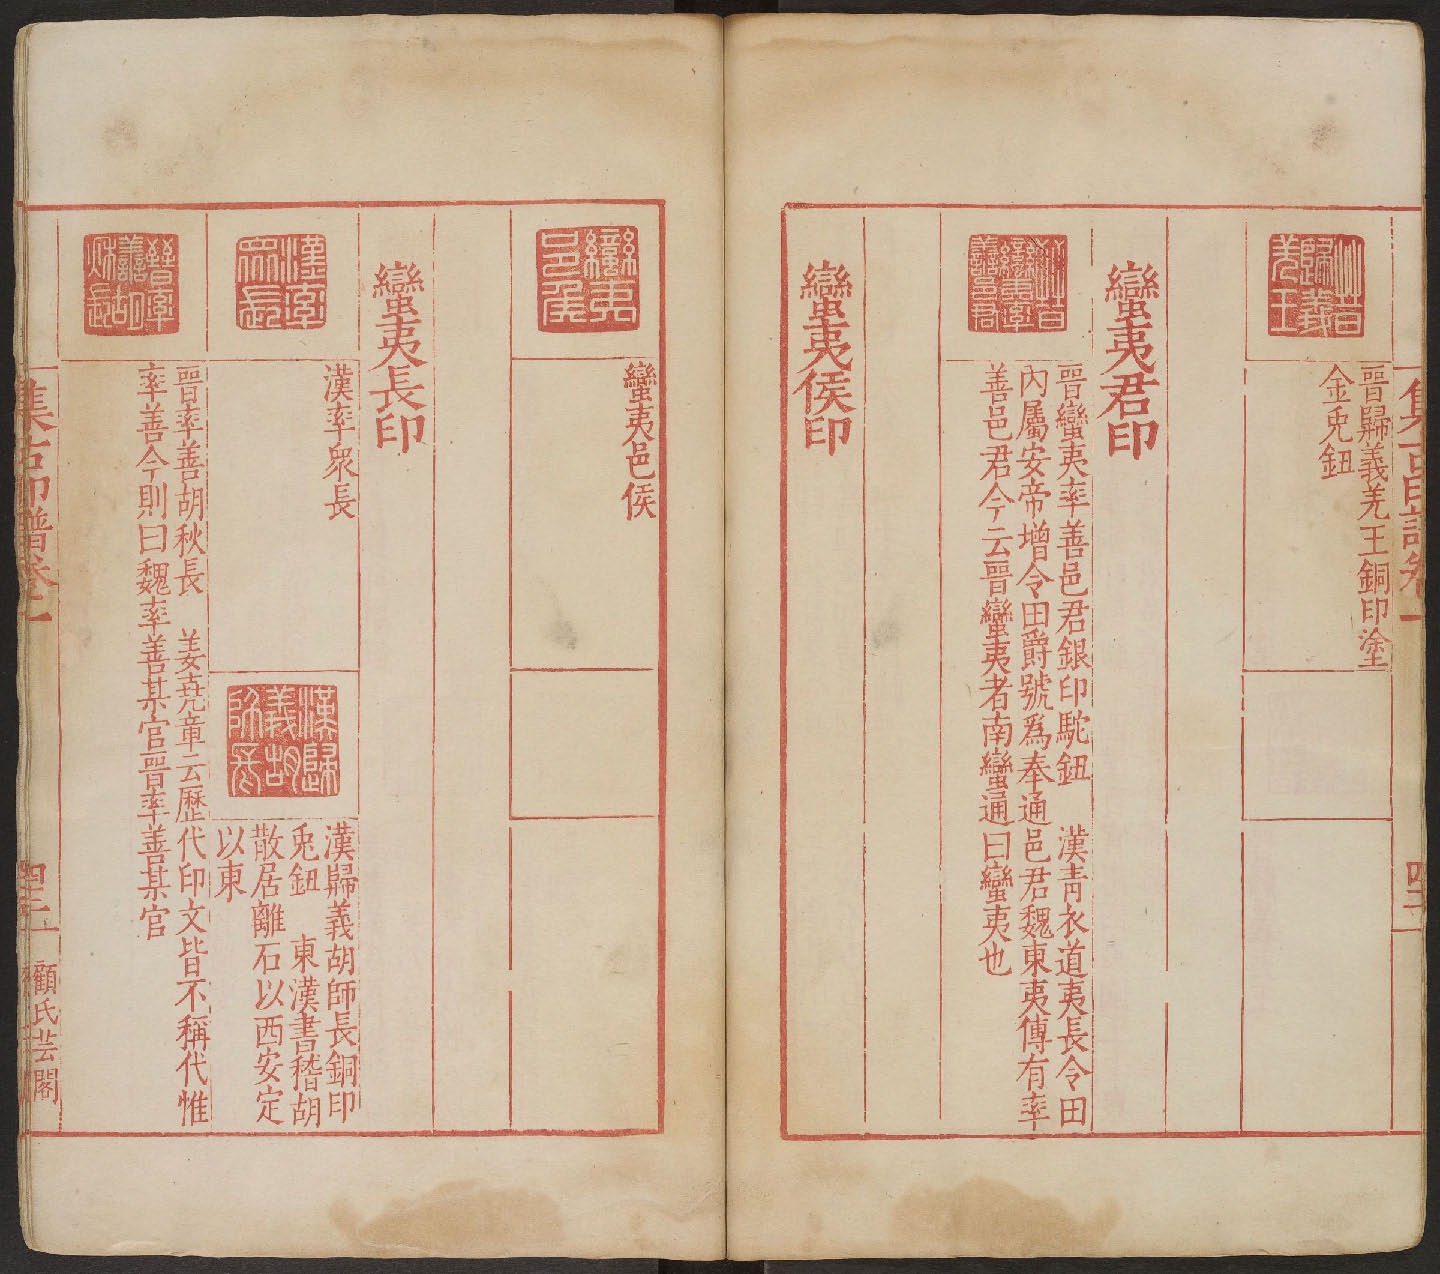 晉歸義羌王
晉歸義羌王銅印塗
金兎鈕
蠻夷君印
晉蠻夷率善邑君
晉蠻夷率善邑君銀印駝鈕 漢青衣道夷長令田
內屬安帝增令田爵號爲奉通邑君魏東夷傳有率
善邑君今云晉蠻夷者南蠻通曰蠻夷也
蠻夷侯印
蠻夷邑侯
蠻夷邑侯
蠻夷長印
漢率衆長
漢率眾長
漢歸義胡師長
漢歸義胡師長銅印
兎鈕 東漢書稽胡
散居離石以西安定
以東
晉率善胡秋長
晉率善胡秋長 姜堯章云歷代印文皆不稱代惟
率善今則曰魏率善某官晉率善某官
集古印譜卷一
顧氏芸閣